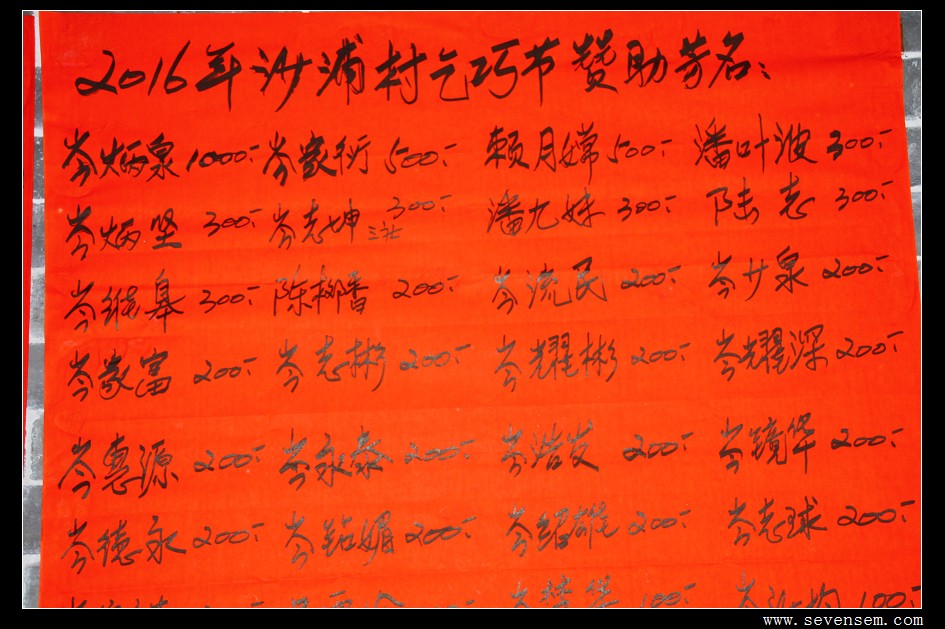 2016年沙浦村乞巧节赞助芳名:
岑炳泉 1000.- 岑家衍 500.- 赖月嫦 500.- 潘叶波 300.-
岑炳坚 300.- 岑志坤 三社 300.- 潘九妹 300.- 陆志 300.-
岑继皋 300.- 陈柳香 200.- 岑流民 200.- 岑少泉 200.-
岑家富 200.- 岑志彬 200.- 岑耀彬 200.- 岑耀深 200.-
岑惠源 200.- 岑永泰 200.- 岑浩发 200.- 岑镜华 200.-
岑德永 200.- 岑钻媚 200.- 岑雄 200.- 岑志球 200.-
100.- 100.-
www.sevensem.com